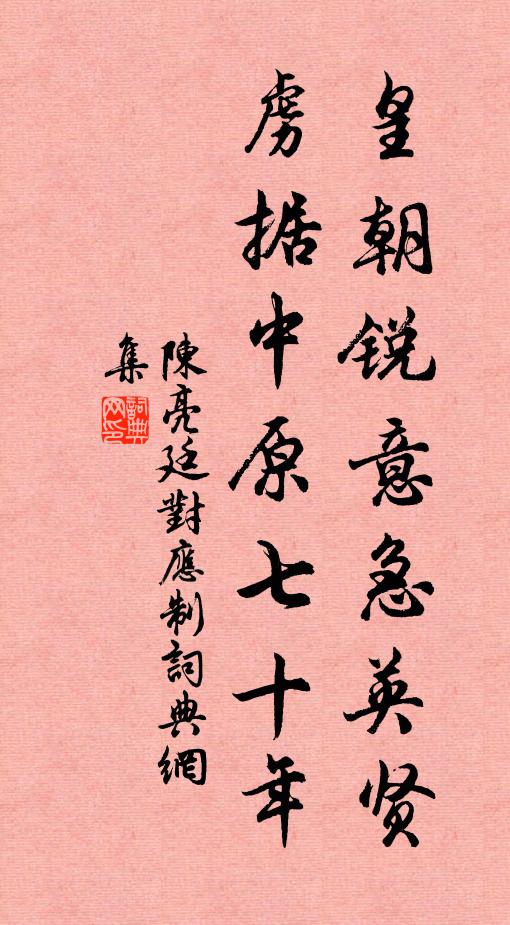 皇朝锐意急英贤
虏据中原七十年
陳亮廷對應制詞典網
集
詞典
网印